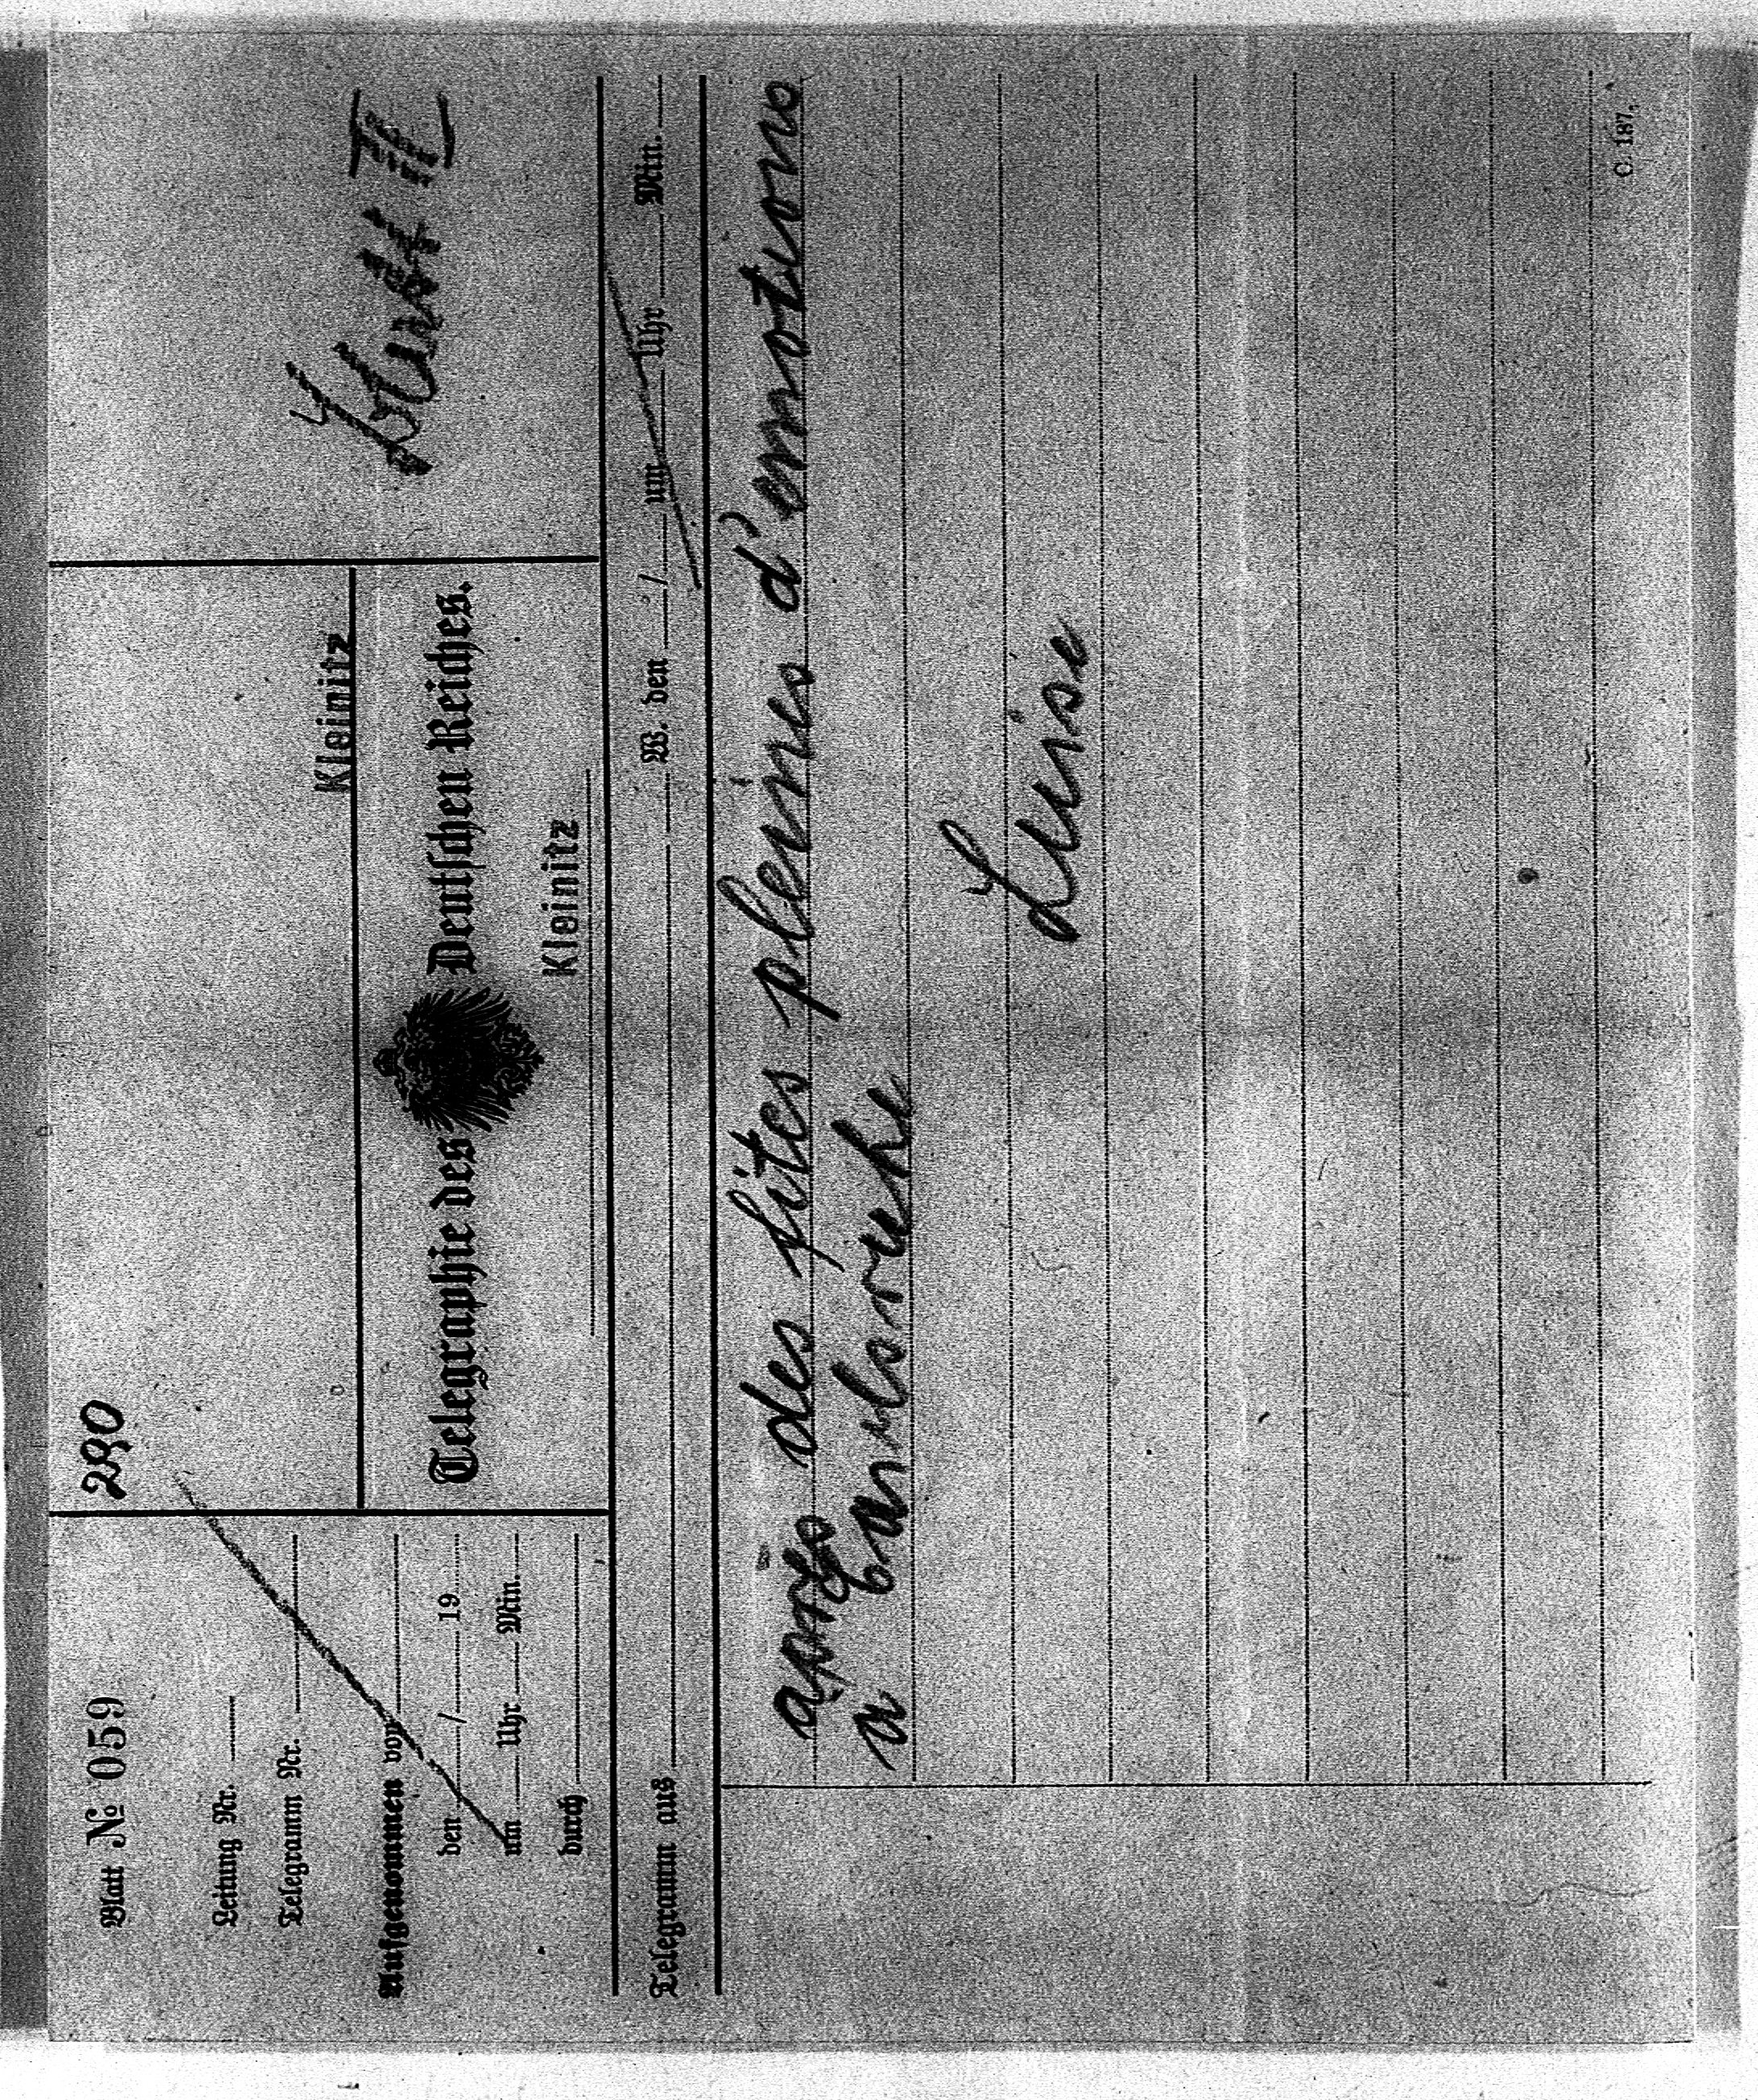 Blatt № 059
Leitung Nr.
Telegramm Nr.
Aufgenommen von
den / 19
um Uhr Min.
durch
280
Kleinitz
Telegraphie des Deutschen Reiches.
Kleinitz
Telegramm aus W. den / um Uhr Min.
après des fites pleines d'emotions
a carlsruhe
Luise
C. 187.